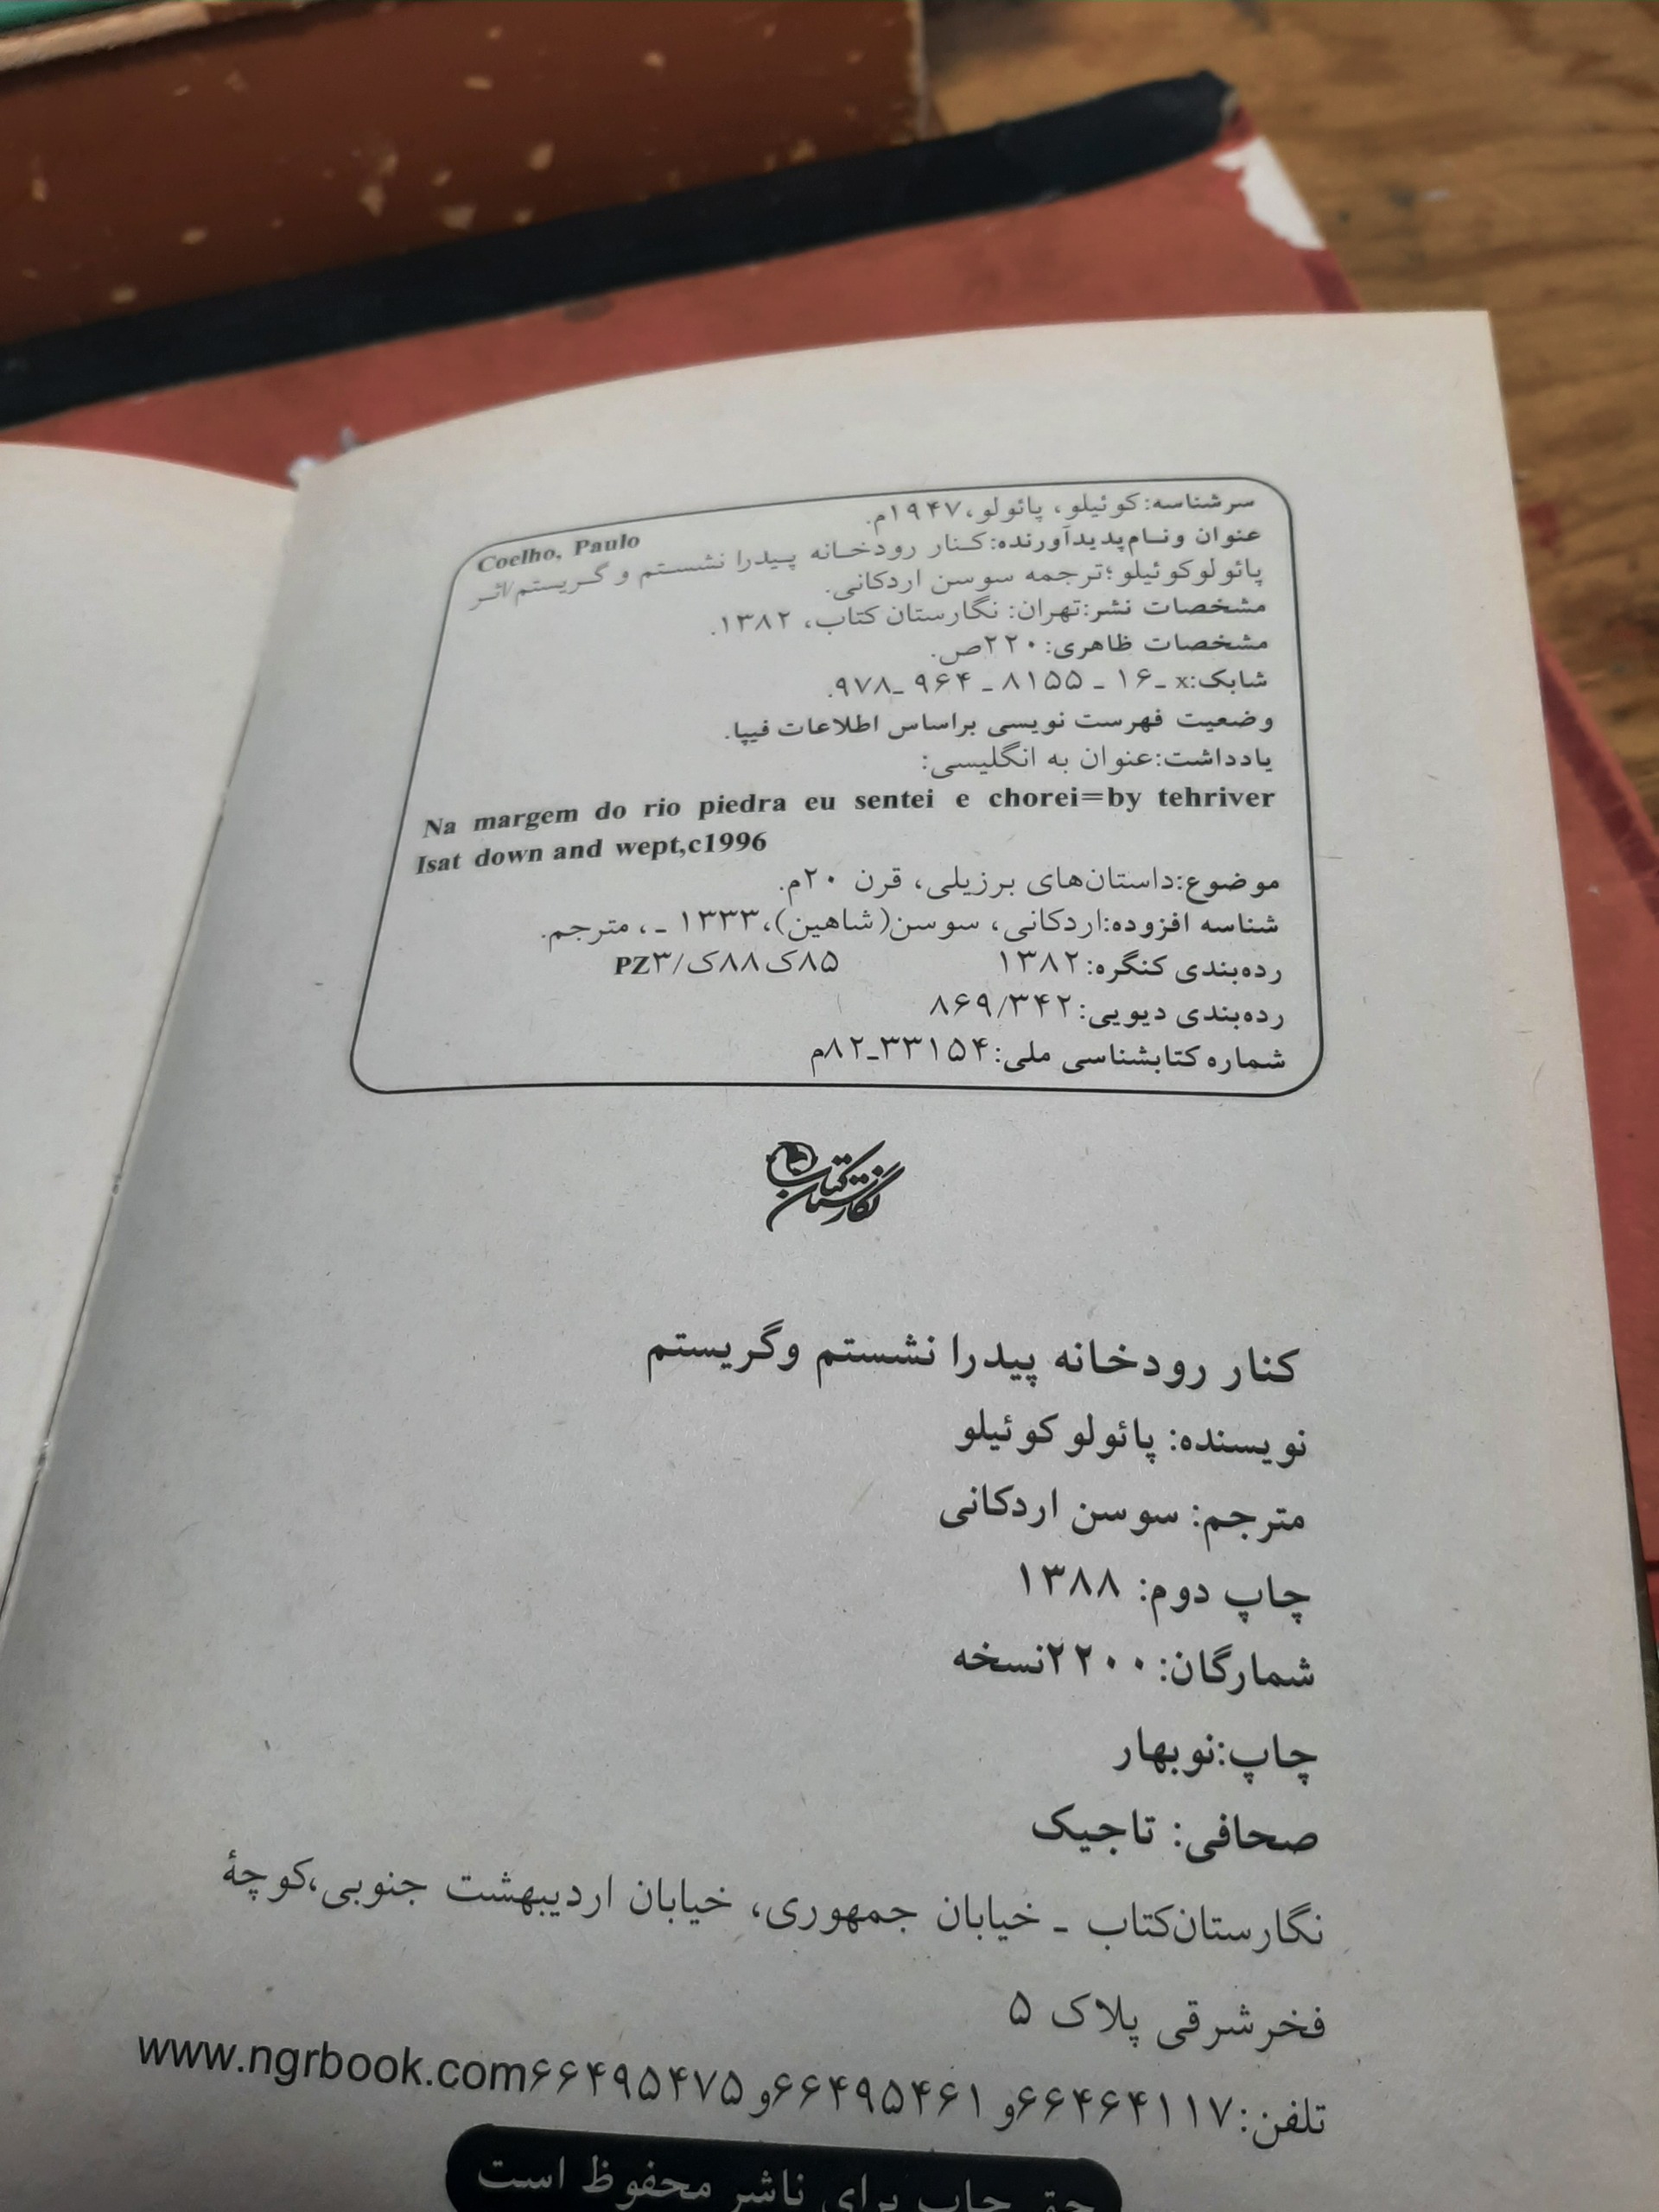 سرشناسه:کوئیلو، پائولو،۱۹۴۷م.
Coelho, Paulo
عنوان ونام‌پدیدآورنده:کنار رودخانه پیدرا نشستم و گریستم/اثر
پائولوکوئیلو؛ترجمه سوسن اردکانی.
مشخصات نشر:تهران: نگارستان کتاب، ۱۳۸۲.
مشخصات ظاهری:۲۲۰ص.
شابک:x ـ۱۶ ـ ۸۱۵۵ ـ ۹۶۴ ـ۹۷۸.
وضعیت فهرست نویسی براساس اطلاعات فیپا.
یادداشت:عنوان به انگلیسی:
Na margem do rio piedra eu sentei e chorei=by tehriver
Isat down and wept,c1996
موضوع:داستان‌های برزیلی، قرن ۲۰م.
شناسه افزوده:اردکانی، سوسن(شاهین)،۱۳۳۳ ـ ، مترجم.
رده‌بندی کنگره:۱۳۸۲ ۸۵ک۸۸ک/PZ۳
رده‌بندی دیویی:۸۶۹/۳۴۲
شماره کتابشناسی ملی:۳۳۱۵۴ـ۸۲م
نگارستان کتاب
کنار رودخانه پیدرا نشستم وگریستم
نویسنده: پائولو کوئیلو
مترجم: سوسن اردکانی
چاپ دوم: ۱۳۸۸
شمارگان:۲۲۰۰نسخه
چاپ:نوبهار
صحافی: تاجیک
نگارستان‌کتاب ـ خیابان جمهوری، خیابان اردیبهشت جنوبی،کوچهٔ
فخرشرقی پلاک ۵
تلفن:۶۶۴۶۴۱۱۷و ۶۶۴۹۵۴۶۱و ۶۶۴۹۵۴۷۵www.ngrbook.com
حق چاپ برای ناشر محفوظ است